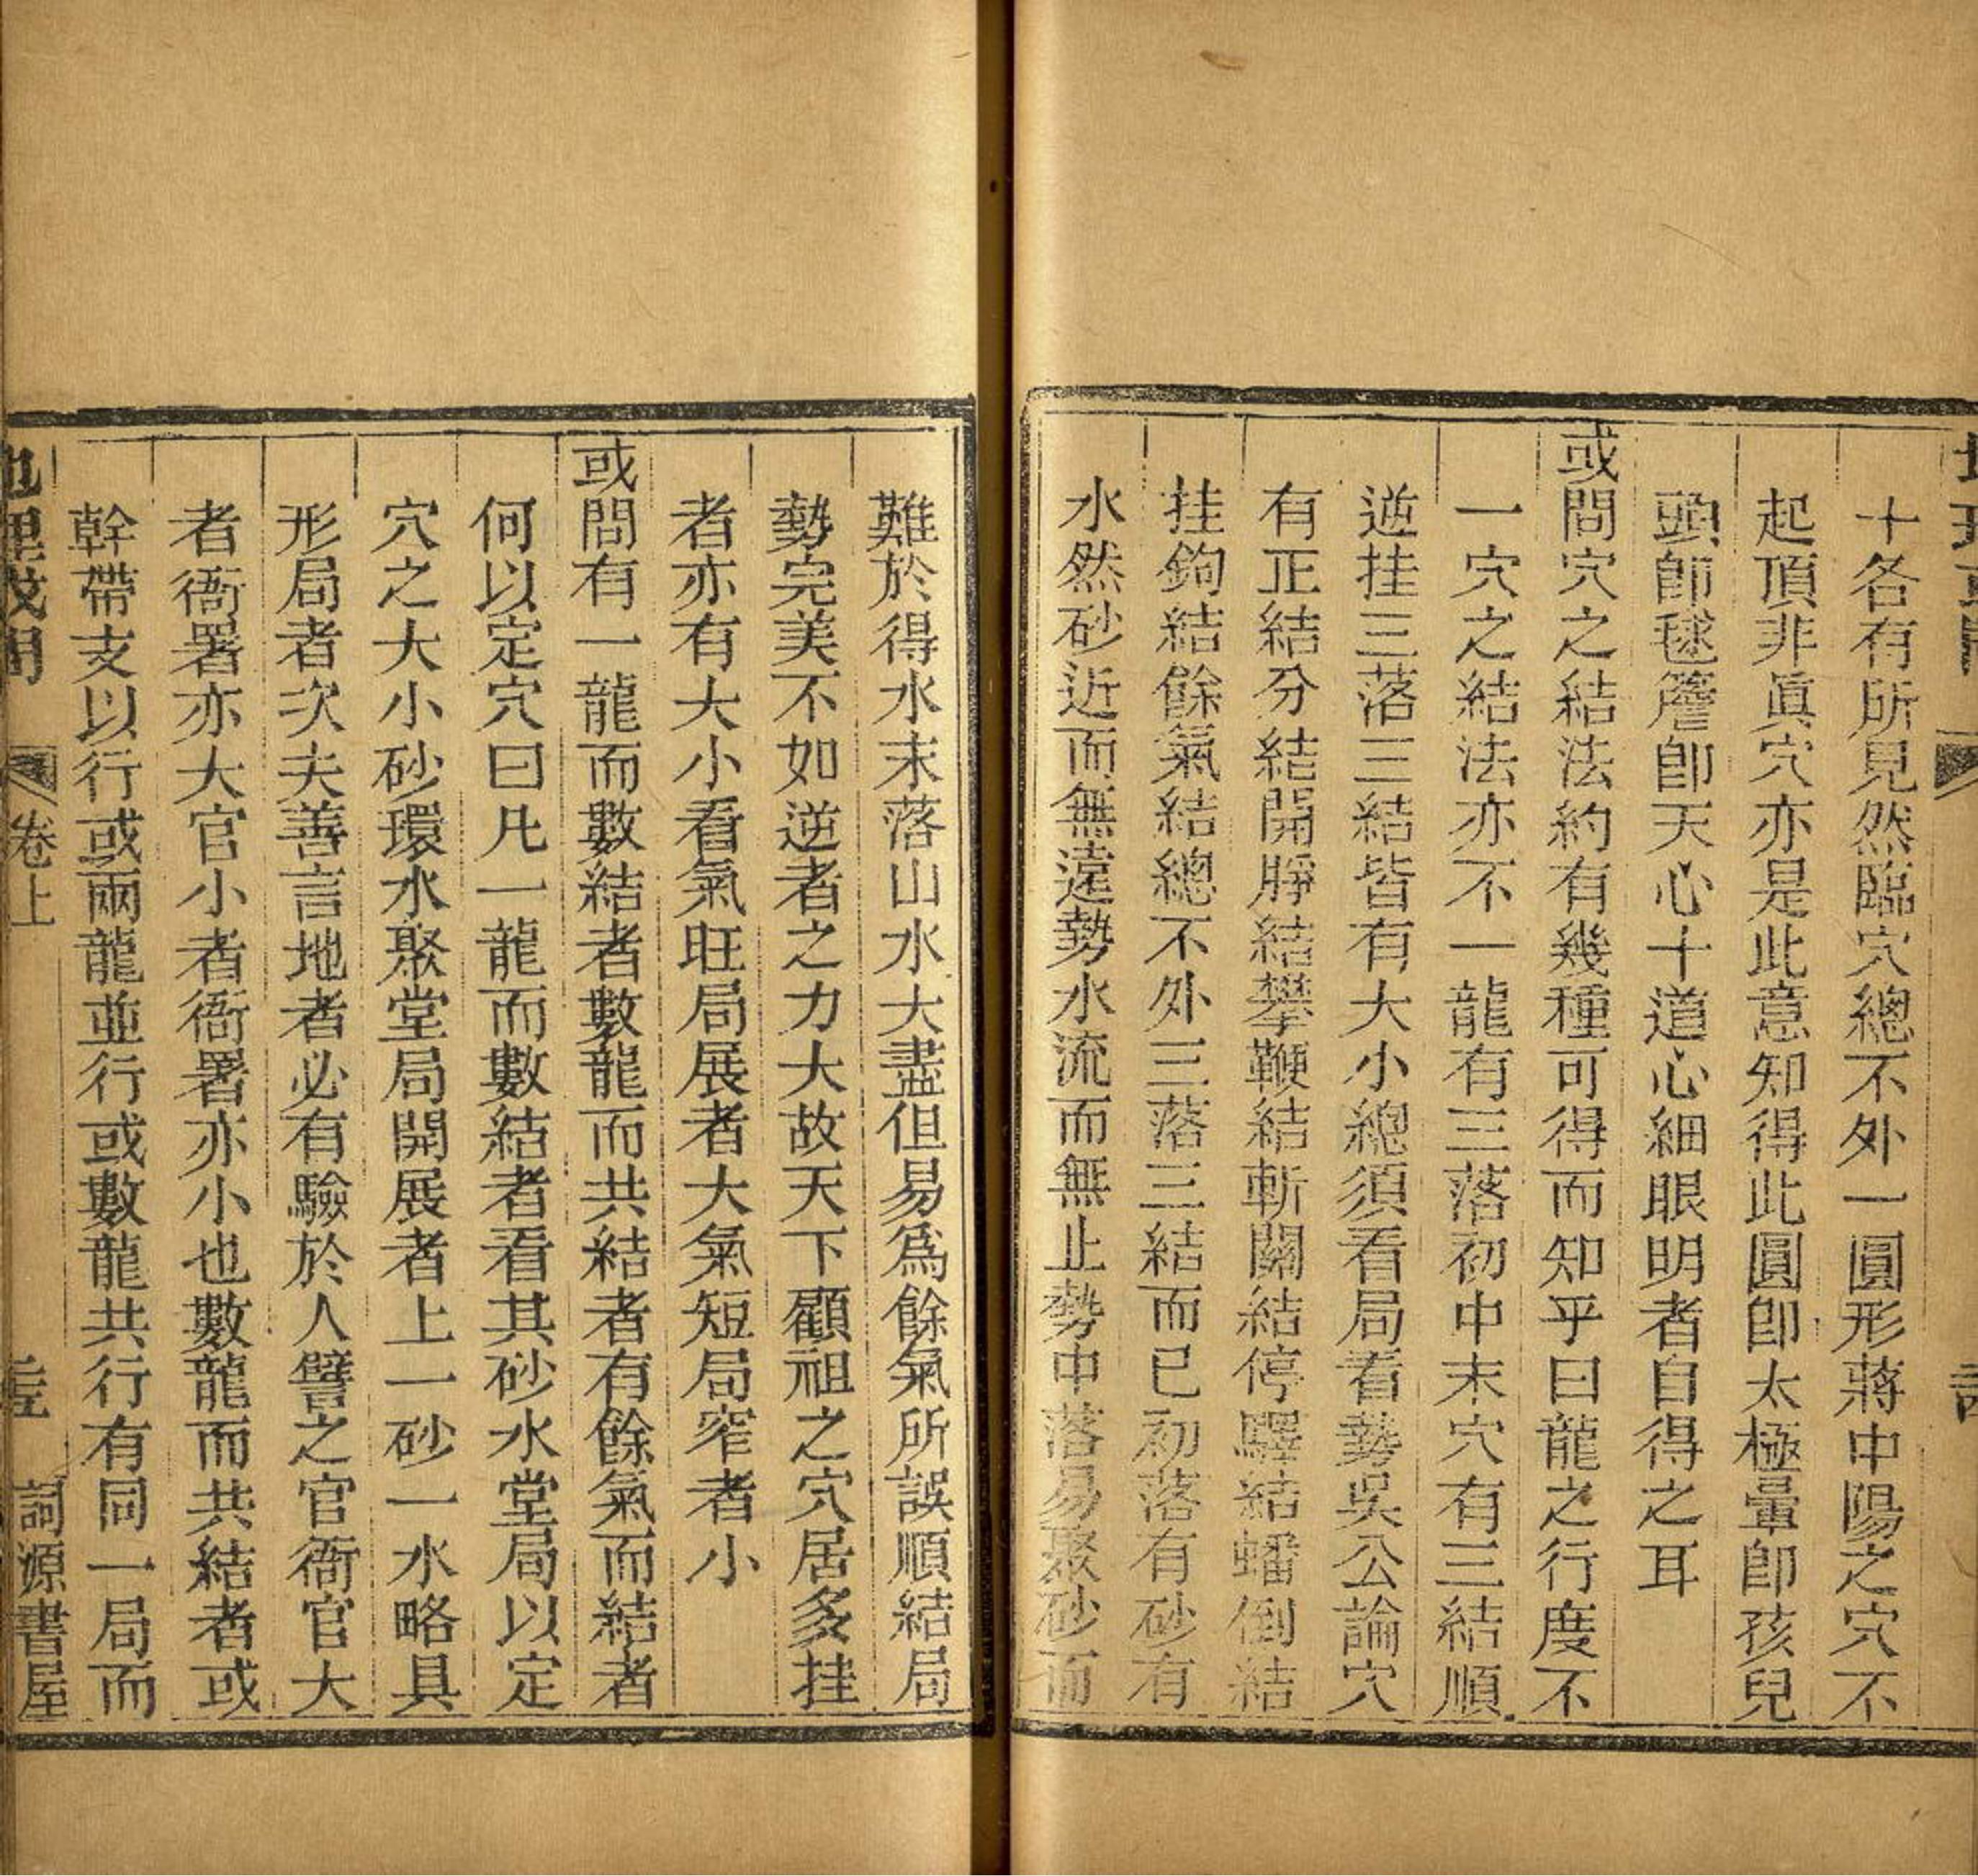 十各有所見然臨穴總不外一圓形蔣中陽之穴不
起頂非眞穴亦是此意知得此圓卽太極暈卽孩兒
頭卽毬簷卽天心十道心細眼明者自得之耳
或問穴之結法約有幾種可得而知乎曰龍之行度不
一穴之結法亦不一龍有三落初中末穴有三結順
逆挂三落三結皆有大小總須看局看勢吳公論穴
有正結分結開睜結攀鞭結斬關結停驛結蟠倒結
挂鉤結餘氣結總不外三落三結而已初落有砂有
水然砂近而無遠勢水流而無止勢中落易聚砂而
難於得水末落山水大盡但易爲餘氣所誤順結局
勢完美不如逆者之力大故天下顧祖之穴居多挂
者亦有大小看氣旺局展者大氣短局窄者小
或問有一龍而數結者數龍而共結者有餘氣而結者
何以定穴曰凡一龍而數結者看其砂水堂局以定
穴之大小砂環水聚堂局開展者上一砂一水略具
形局者次夫善言地者必有驗於人譬之官衙官大
者衙署亦大官小者衙署亦小也數龍而共結者或
幹帶支以行或兩龍並行或數龍共行有同一局而
卷上
詞源書屋